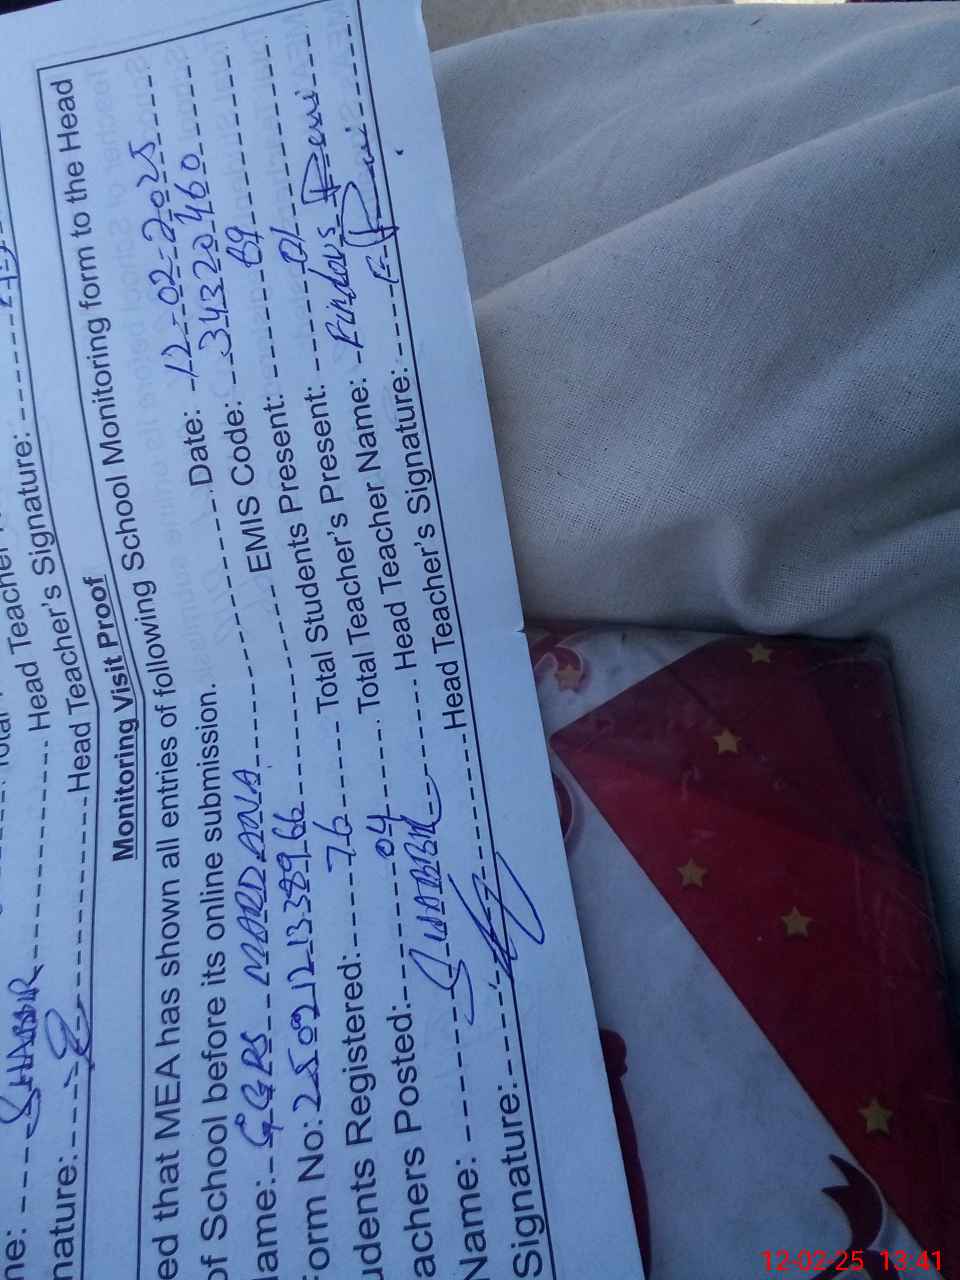 Head Teacher
ne: SHABBIR Head Teacher's Signature:
nature: Head Teacher's Signature:
Monitoring Visit Proof
ed that MEA has shown all entries of following School Monitoring form to the Head
of School before its online submission. Date: 12-02-2025
lame: GGPS MARDANA EMIS Code: 34320460
orm No: 2502121338966 Total Students Present: 69
udents Registered: 76 Total Teacher's Present: 01
achers Posted: 04 Total Teacher Name: Firdous
Name: SHABBIR Head Teacher Name:
Signature: Head Teacher's Signature:
12-02-25 13:41